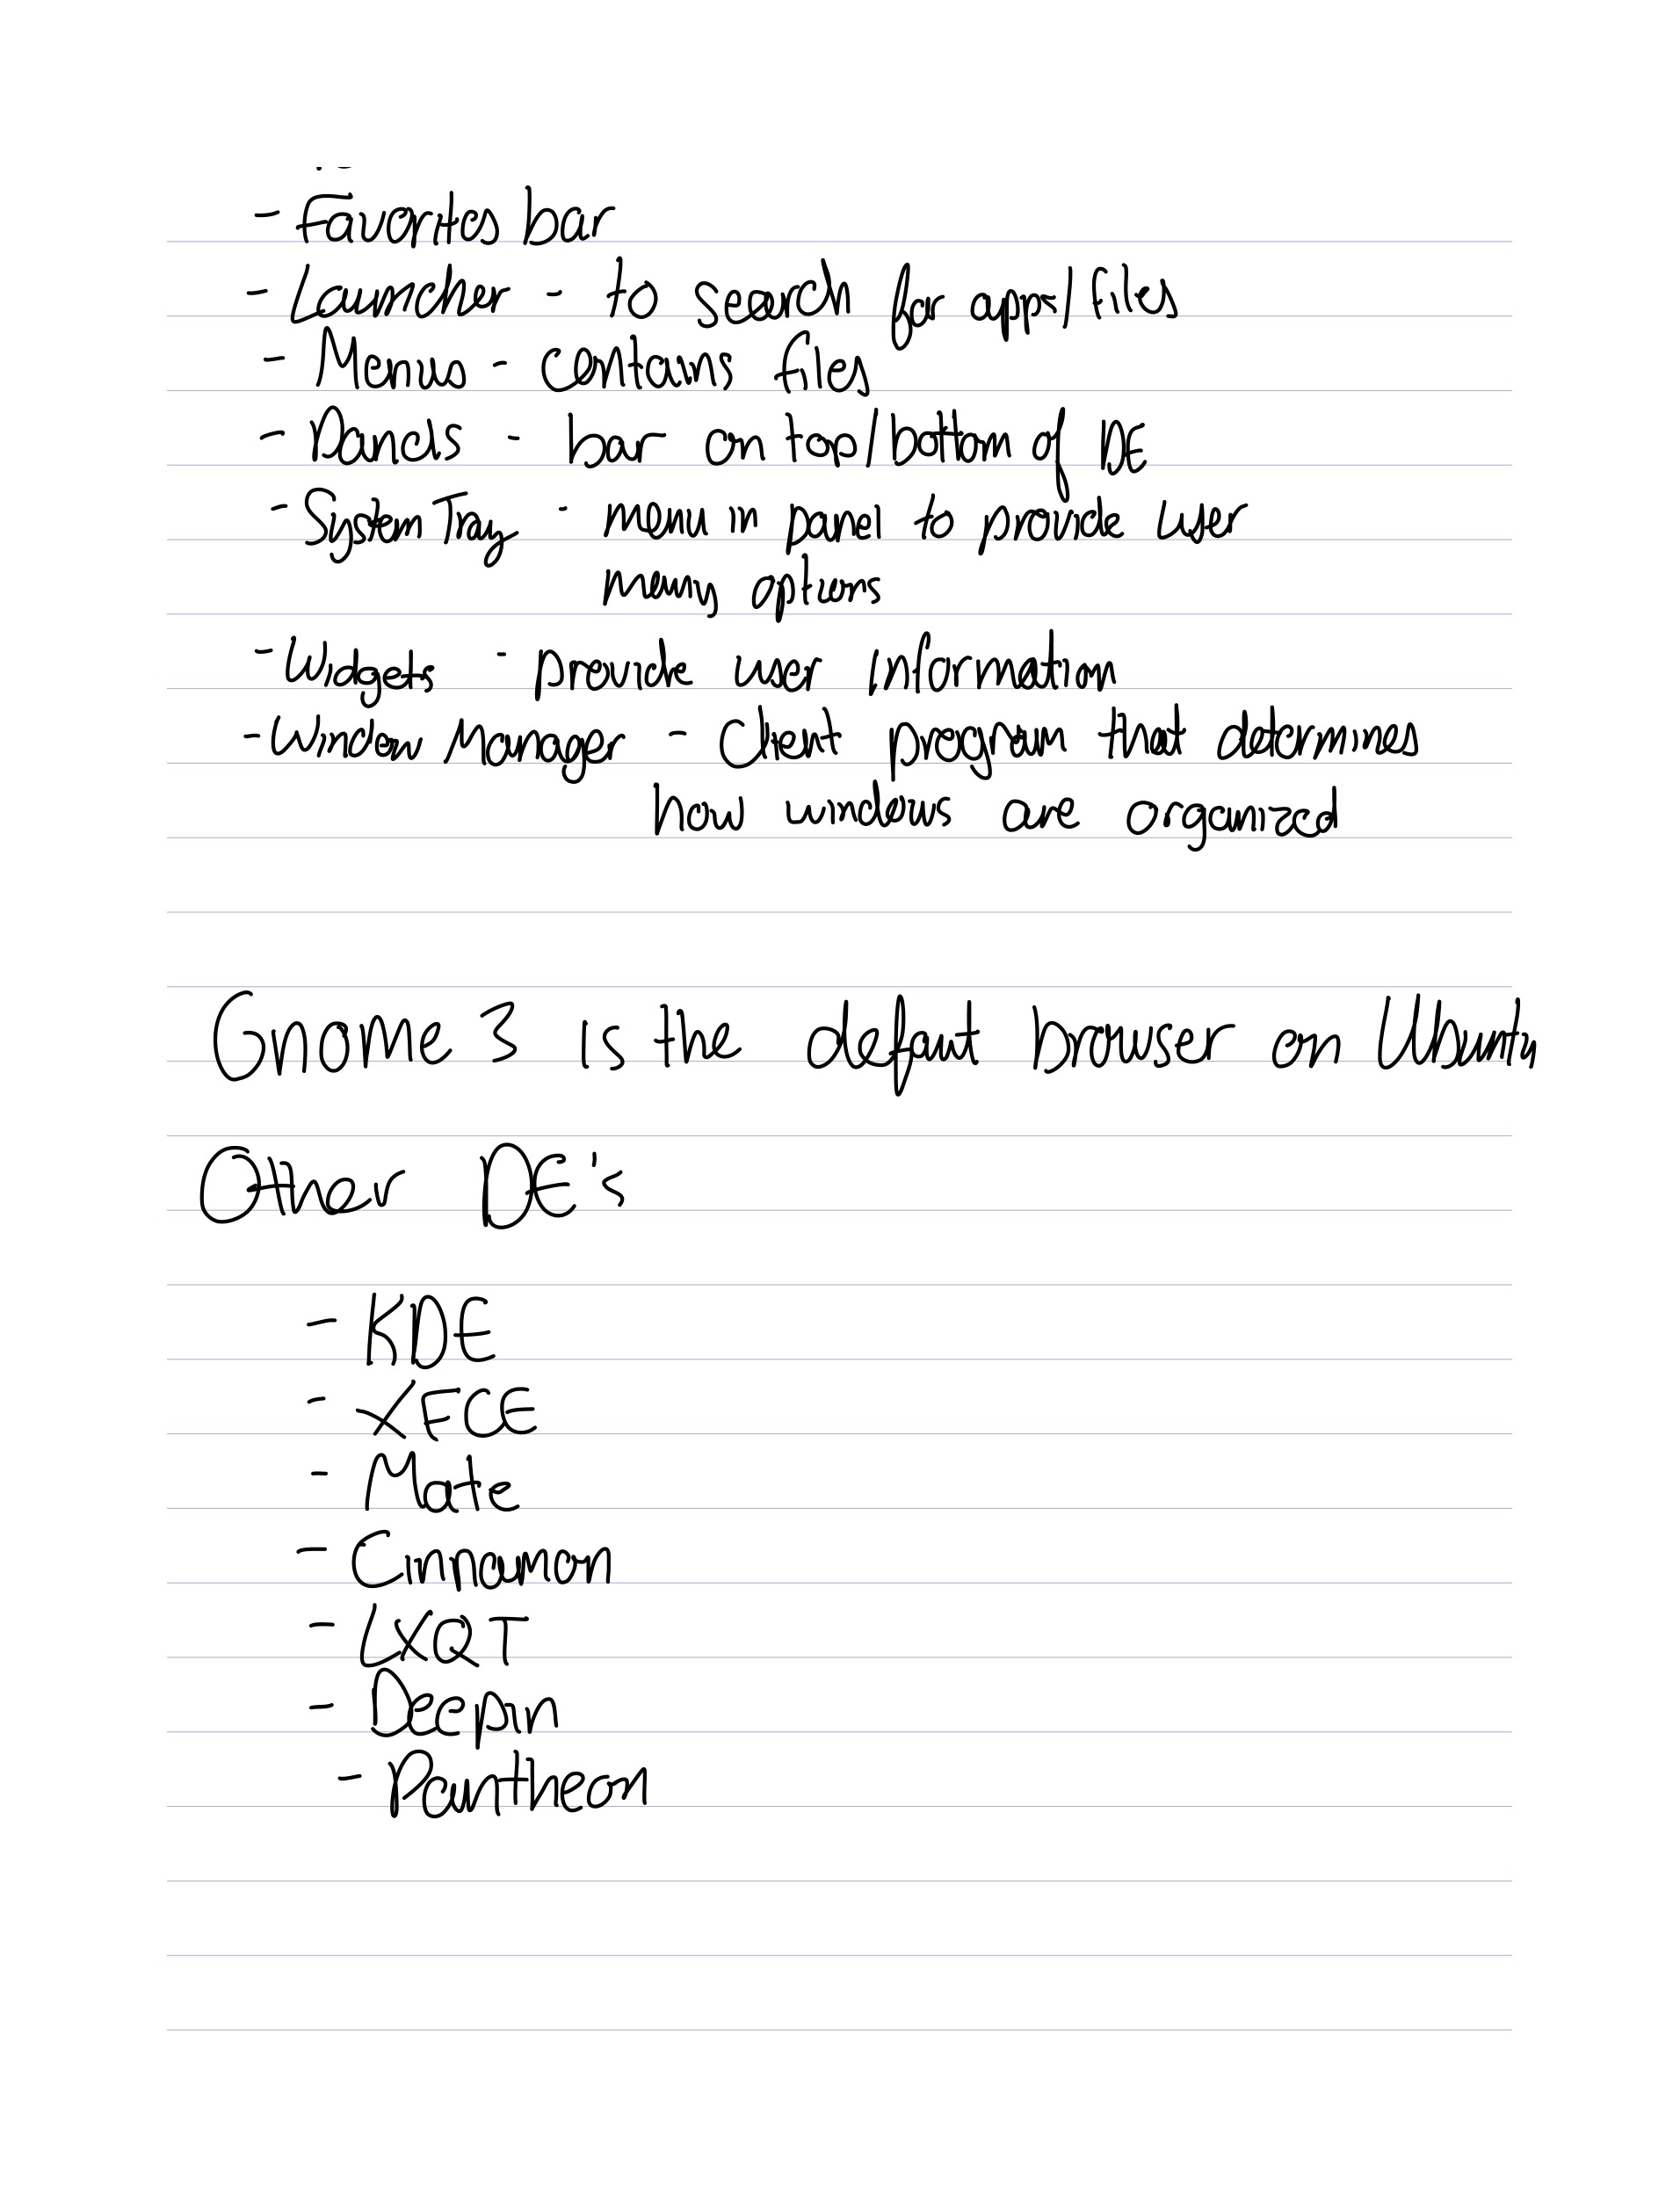 - Favorites bar
- Launcher - to search for apps/files
- Menus - contains files
- Panels - bar on top/bottom of DE
- System Tray - menu in panel to provide user
many options
- Widgets - provide user information
- Window Manager - Client program that determines
how windows are organized
Gnome 3 is the default browser on Ubuntu
Other DE's
- KDE
- XFCE
- Mate
- Cinnamon
- LXQT
- Deepin
- Pantheon